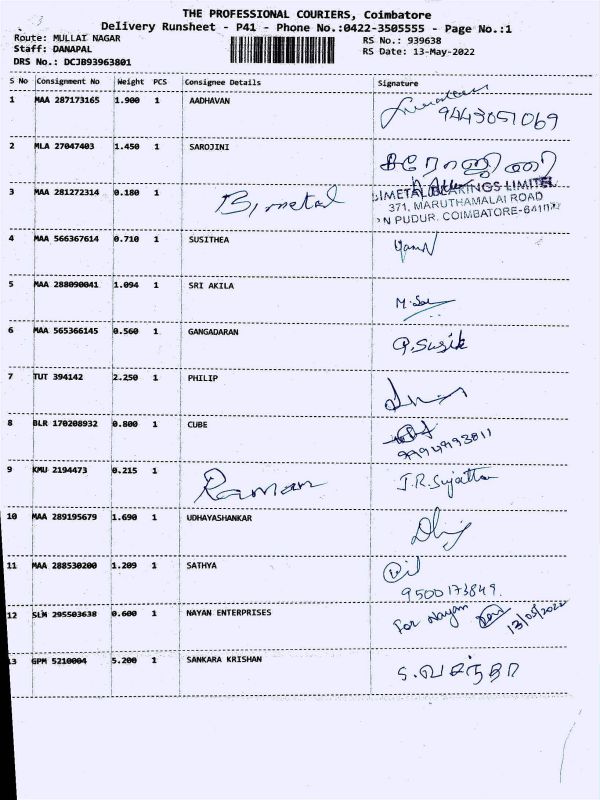 THE PROFESSIONAL COURIERS, Coimbatore
Delivery Runsheet - P41 - Phone No.:0422-3505555 - Page No.:1
Route: MULLAI NAGAR RS No.: 939638
Staff: DANAPAL RS Date: 13-May-2022
DRS No.: DCJB93963801
S No Consignment No Weight PCS Consignee Details Signature
1 MAA 287173165 1.900 1 AADHAVAN
9443051069
2 MLA 27047403 1.450 1 SAROJINI சரோஜினி
3 MAA 281272314 0.180 1 Bimetal BIMETAL BEARINGS LIMITED
371, MARUTHAMALAI ROAD
N PUDUR, COIMBATORE-641
4 MAA 566367614 0.710 1 SUSITHEA
5 MAA 288090041 1.094 1 SRI AKILA
6 MAA 565366145 0.560 1 GANGADARAN
7 TUT 394142 2.250 1 PHILIP
8 BLR 170208932 0.800 1 CUBE
9994993811
9 KMU 2194473 0.215 1 Raman J.R.Sujatha
10 MAA 289195679 1.690 1 UDHAYASHANKAR
11 MAA 288530200 1.209 1 SATHYA
9500173849.
12 SLM 295503638 0.600 1 NAYAN ENTERPRISES For Nayan 13/05/2022
13 GPM 5210004 5.200 1 SANKARA KRISHAN S.வசந்தா